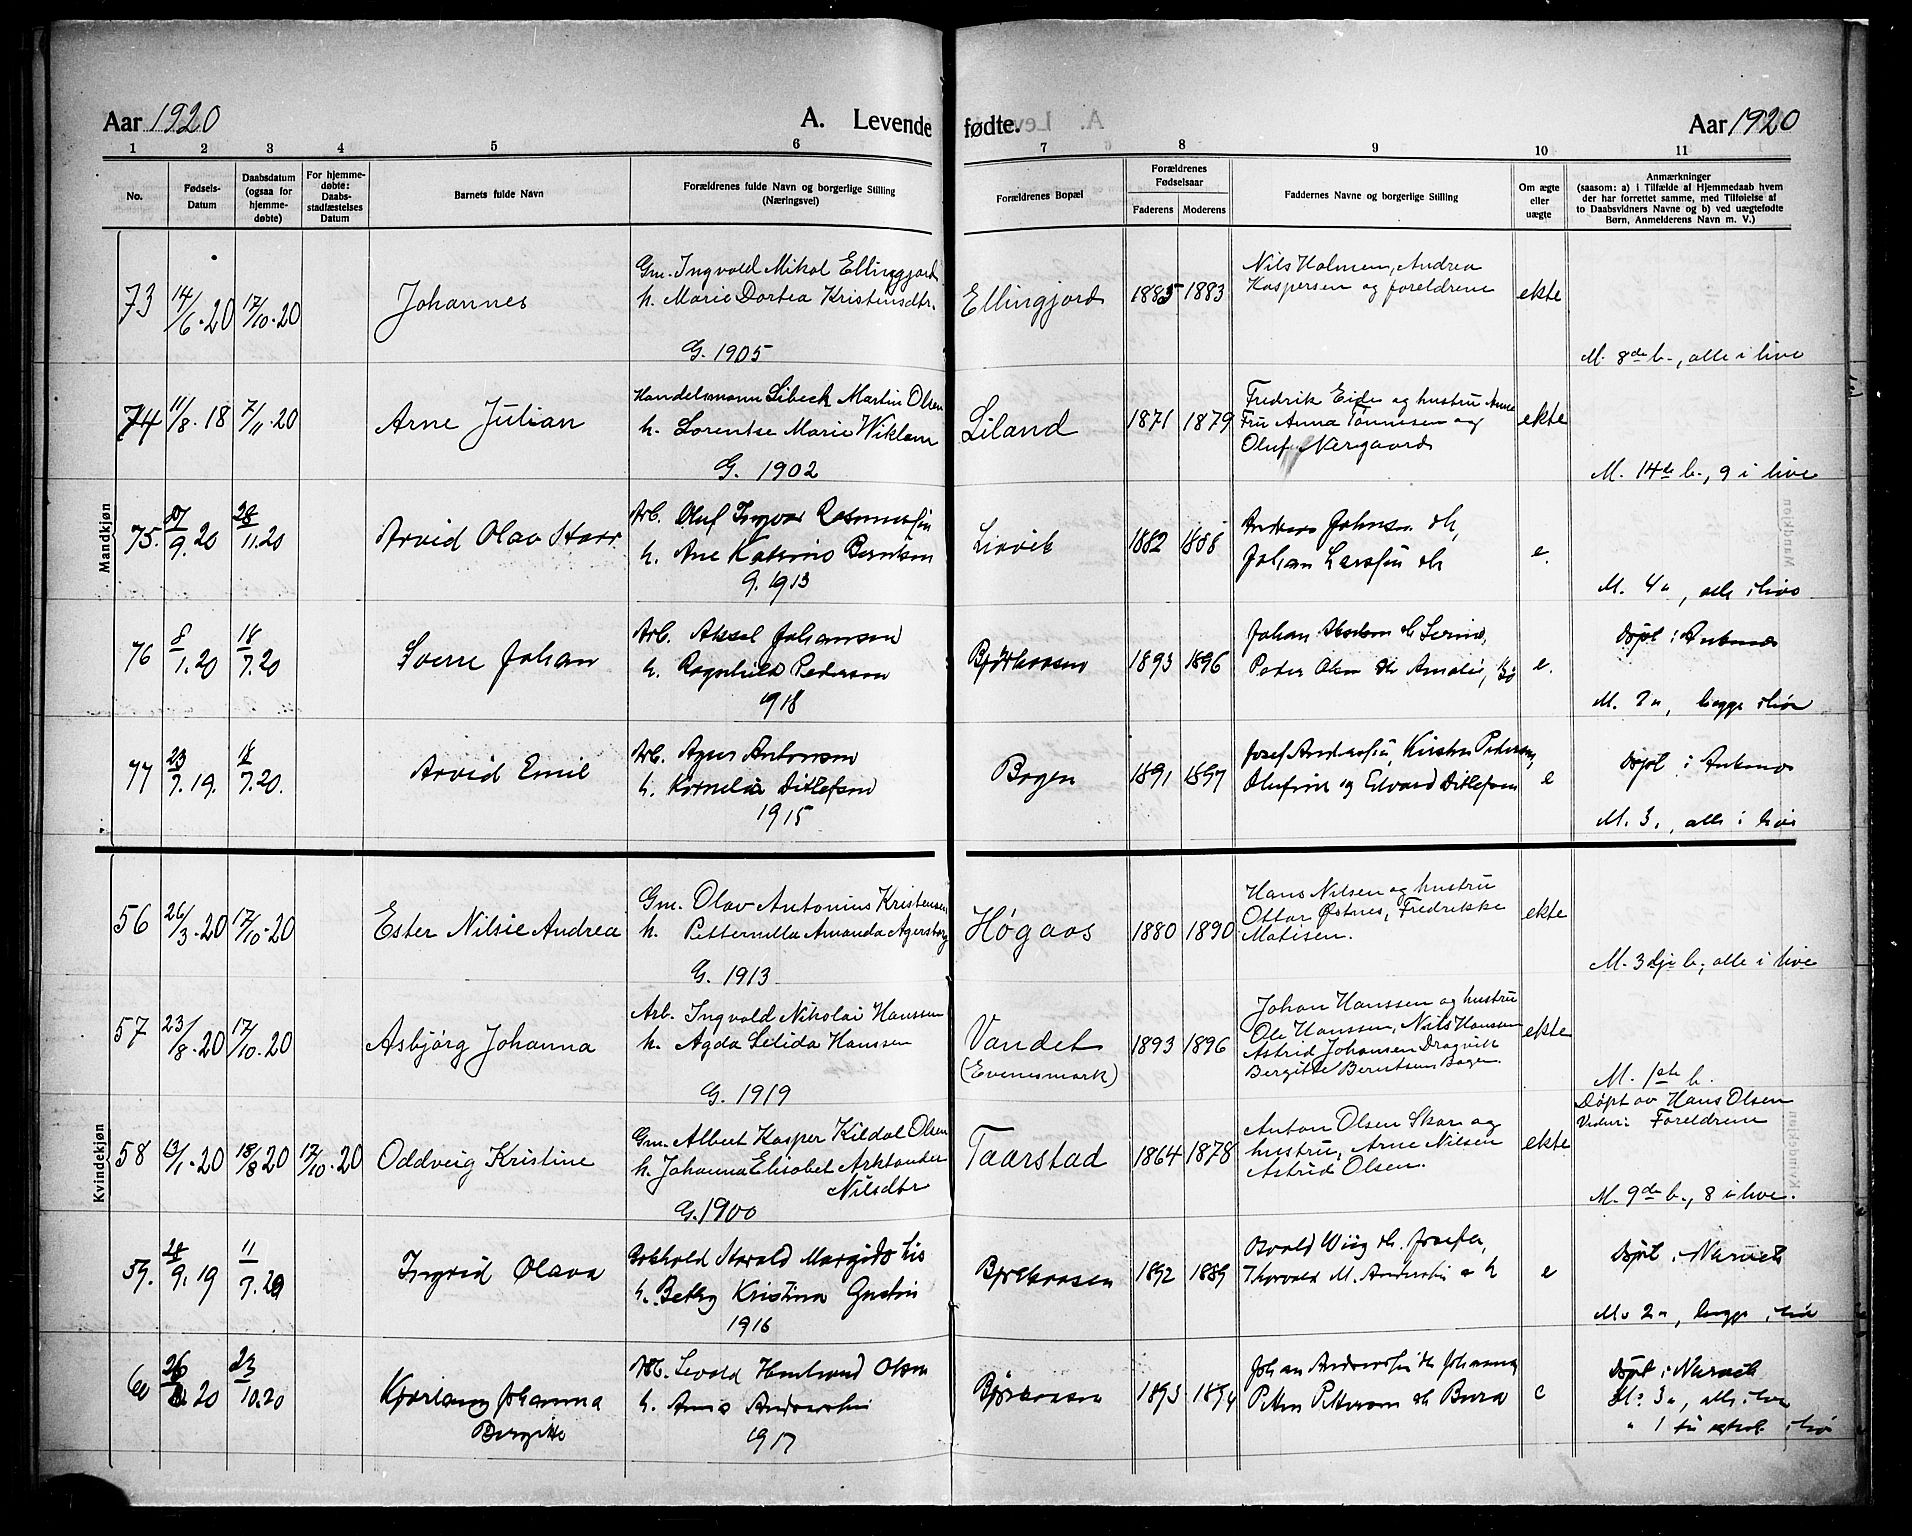 Aar 1920
A. Levende fødte.
Aar 1920
1 2 3 4 5 6 7 8 9 10 11
No.
Fødsels-
Datum
Daabsdatum
(ogsaa for
hjemme-
døbte)
For hjemme-
døbte:
Daabs-
stadfæstelses
Datum
Barnets fulde Navn
Forældrenes fulde Navn og borgerlige Stilling
(Næringsvei)
Forældrenes Bopæl
Forældrenes
Fødselsaar
Faderens Moderens
Faddernes Navne og borgerlige Stilling
Om ægte
eller
uægte
Anmærkninger
(saasom: a) i Tilfælde af Hjemmedaab hvem
der har forrettet samme, med Tilføielse af
to Daabsvidners Navne og b) ved uægtefødte
Børn, Anmelderens Navn m. V.)
Mandkjøn
73 14/6.20 17/10.20 Johannes
Gm. Ingvald Mikal Ellingjord
h. Marie Dortea Kristensdtr.
G. 1905
Ellingjord 1885 1883
Nils Holmen, Andrea
Kaspersen og foreldrene
ekte
M. 8de b., alle i live
74 11/8.18 7/11.20 Arne Julian
Handelsmann Libeck Martin Olsen
h. Lorentse Marie Wiklem
G. 1902
Liland 1871 1879
Fredrik Eide og hustru Anna
Fru Anna Tønnesen og
Oluf Nergaard
ekte
M. 14de b., 9 i live
75. 9.20 28/11.20 Arvid Olav
Arb. Oluf Ingvar
h. Ane Katrine Berntsen
G. 1913
Livik 1882 1888
Johan
e.
M. 4", alle i live
76 8/1.20 18/7.20 Sverre Johan
Arb. Aksel Johansen
h. Ragnhild Pedersen
1918
Bjørkaasen 1893 1896
Johan
Peder Olsen Amalie,
e.
Døpt i
M. 2", begge i live
77 23/7.19. 18/7.20. Arvid Emil
Arb. Antonsen
h. Kornelia Ditlefsen
1915
Bogen 1891 1897
Josef Kirsten Pedersen,
Olufine og Edvard Ditlefsen
e
Døpt i
M. 3., alle i live
Kvindekjøn
56 26/3.20 17/10.20 Ester Nilsie Andrea
Gm. Olav Antonius Kristensen
h. Petternilla Amanda Agersborg
G. 1913
Høgaas 1880 1890
Hans Nilsen og hustru
Ottar Østnes, Fredrikke
Matisen.
ekte
M. 3dje b., alle i live
57 23/8.20 17/10.20 Asbjørg Johanna
Arb. Ingvald Nikolai Hanssen
h. Agda Lilida Hanssen
G. 1919
Vandet
(Evenesmark)
1893 1896
Johan Hanssen og hustru
Ole Hanssen, Nils Hanssen
Astrid Johansen Dragvik
Bergitte Berntsen Bogen.
ekte
M. 1ste b.
58 13/1.20 18/8.20 17/10.20 Oddveig Kristine
Gm. Albert Kasper Kildal Olsen
h. Johanna Elisabet Arktander
Nilsdtr
G. 1900
Taarstad 1864 1878
Anton Olsen Skar og
hustru, Arne Nilsen
Astrid Olsen.
ekte
Døpt av Hans Olsen
Foreldrene
M. 9de b., 8 i live.
59. 28/9.19 11/7.20 Ingrid Olava
Harald
h. Betsy Kristina
1916
Bjørkaasen 1892 1889
Wiig Josefa,
Thorvald M.
e
Døpt i Narvik
M. 2", begge i live
60 20 23/10.20 Johanna
Bergitte
Arb. Olsen
h.
1917
Bjørkaasen 1893 1894
Johan Johanna
e
Døpt i Narvik
M. 3", alle i live